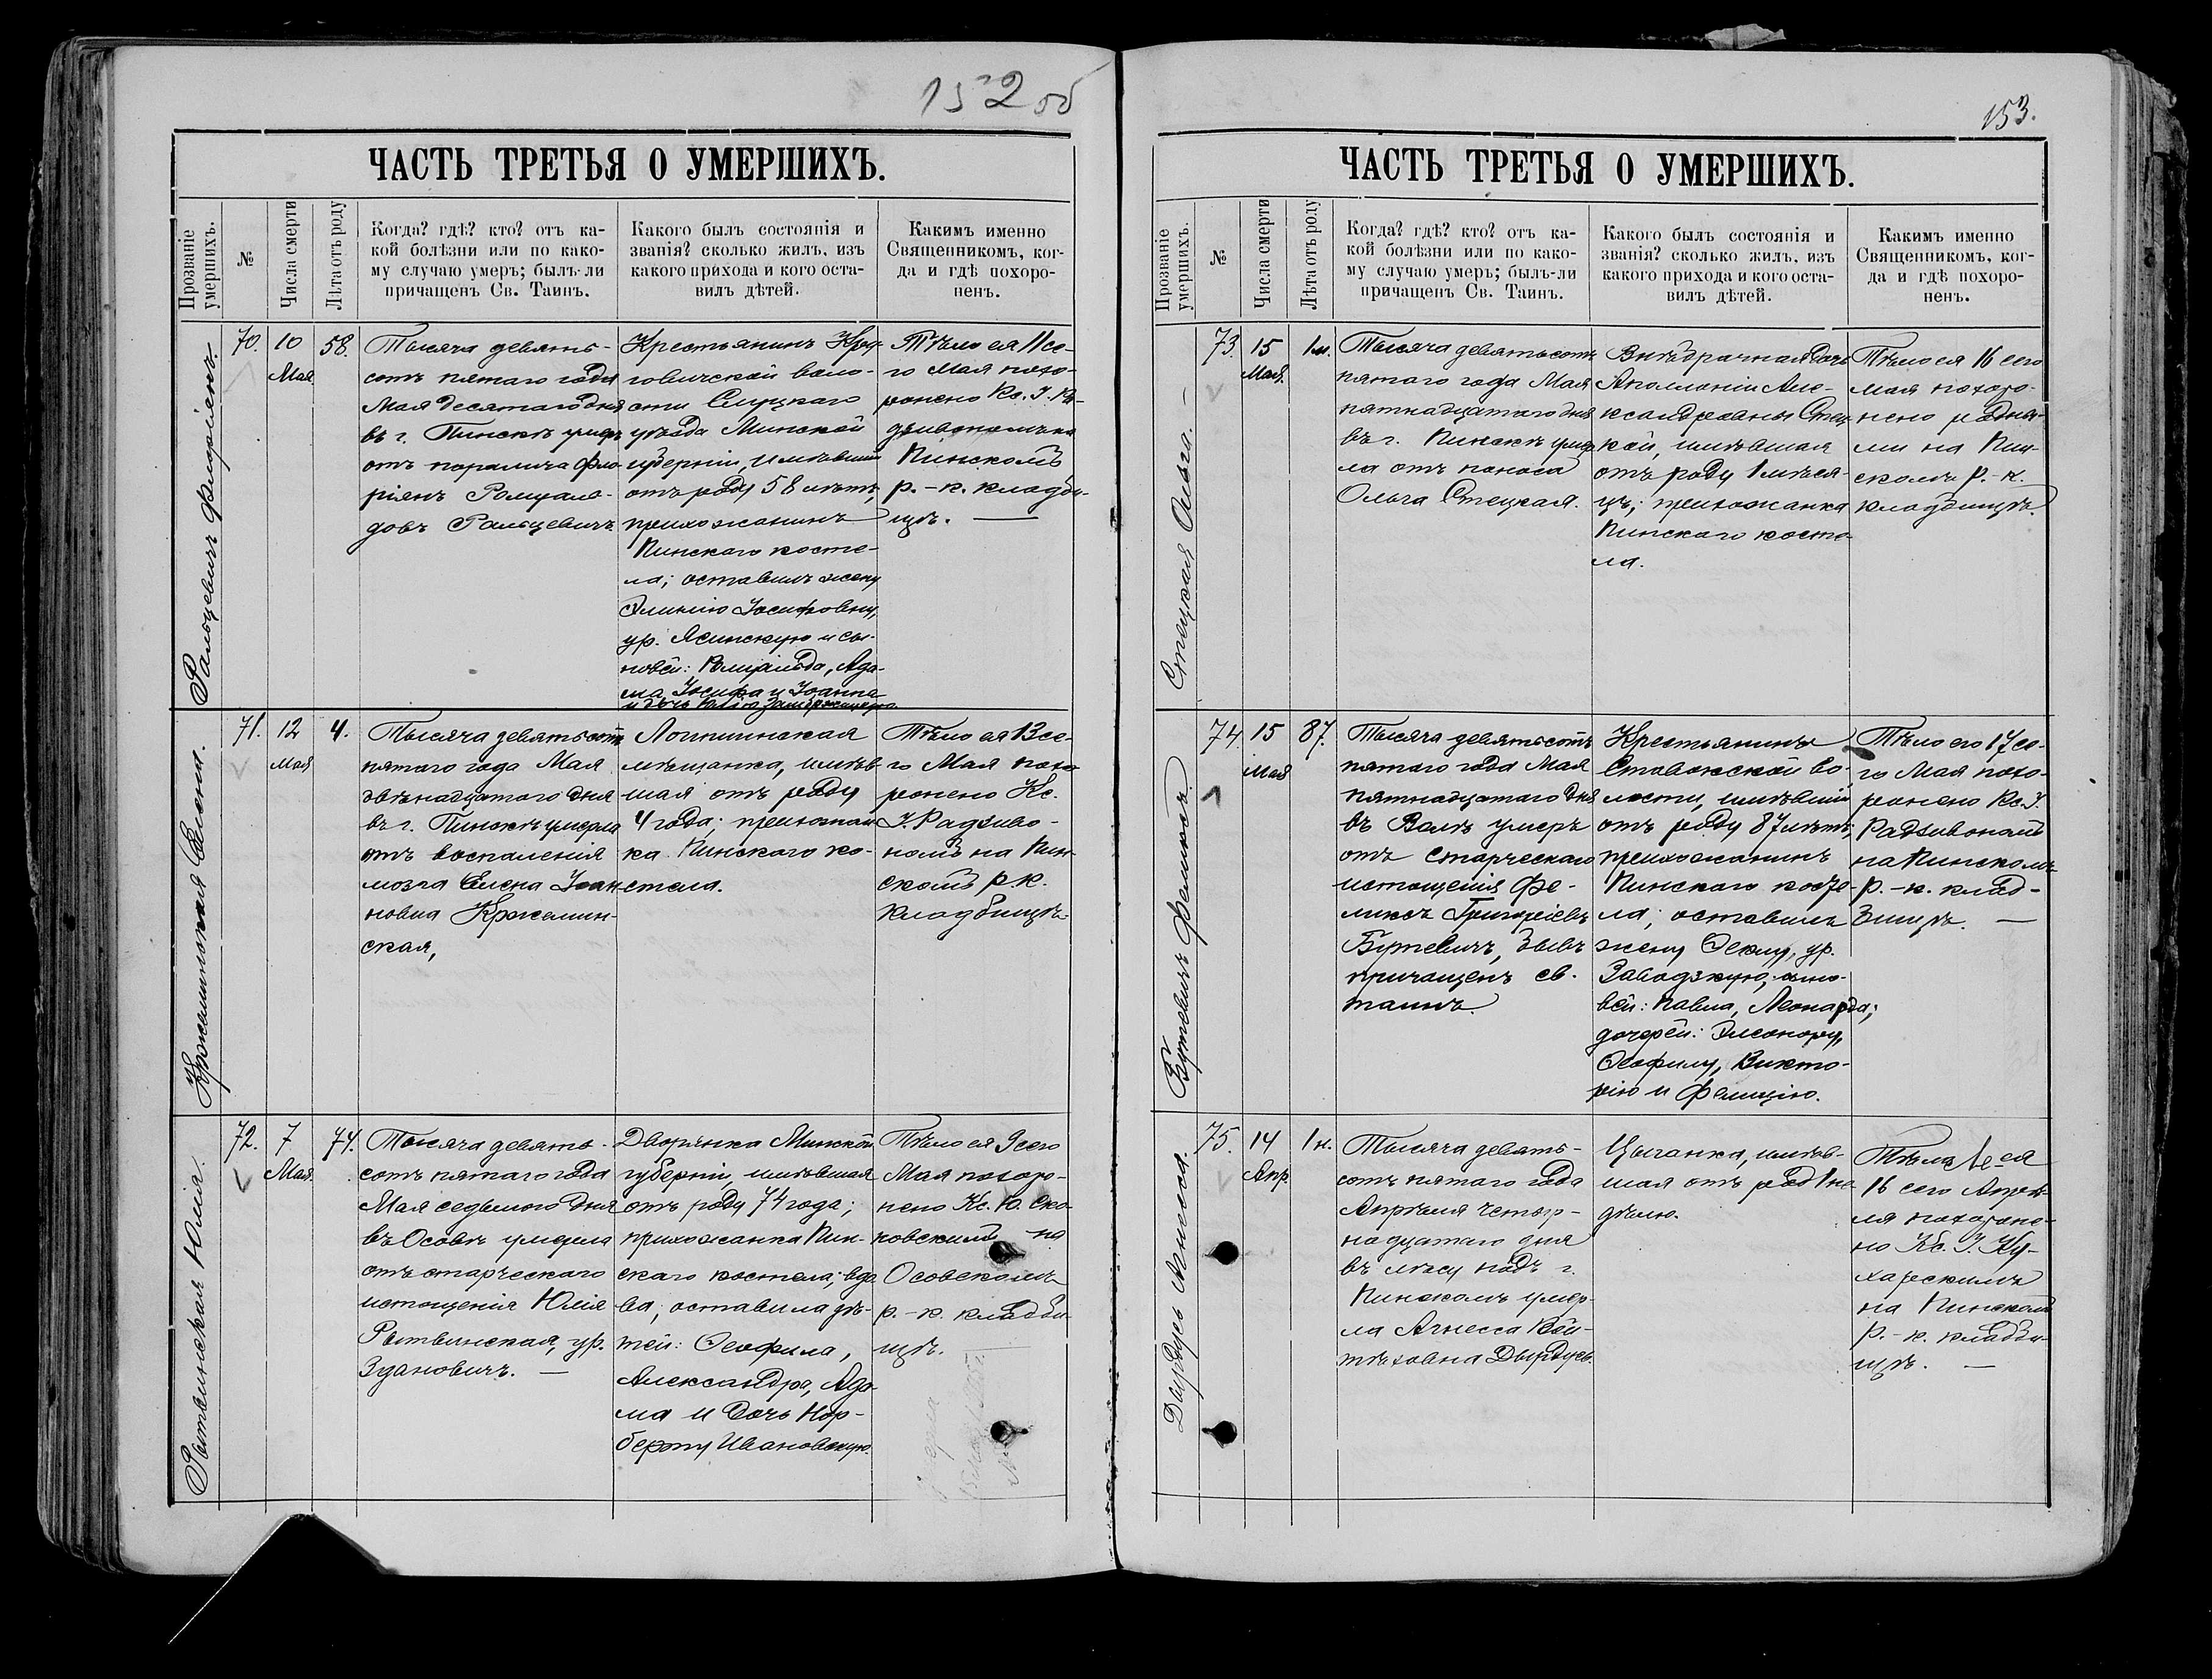 152 об
ЧАСТЬ ТРЕТЬЯ О УМЕРШИХЪ.
Прозваніе умершихъ.
№
Числа смерти
Лѣта отъ роду
Когда? гдѣ? кто? отъ ка-
кой болѣзни или по како-
му случаю умеръ; былъ-ли
причащенъ Св. Таинъ.
Какого былъ состоянія и
званія? сколько жилъ, изъ
какого прихода и кого оста-
вилъ дѣтей.
Какимъ именно
Священникомъ, ког-
да и гдѣ похоро-
ненъ.
Рамцевичъ Флоріенъ.
70.
10
Мая
58.
Тысяча девять-
сотъ пятаго года
Мая десятаго дня
въ г. Пинскѣ умеръ
отъ паралича Фло-
ріянъ Ромуаль-
довъ
Крестьянинъ
говичской воло-
сти Слуцкаго
уѣзда Минской
губерніи, имѣвшій
отъ роду 58 лѣтъ,
прихожанинъ
Пинскаго косте-
ла; оставилъ жену
Эмилію Іосифовну,
ур. Ясинскую и сы-
новей: Ромуальда, Ада-
ма, Іосифа и Іоанна
и дочь Юлію
Тѣло ея 11 се-
го Мая похо-
ронено Кс. І. Ра-
дзивономъ на
Пинскомъ
р.-к. кладби-
щѣ. —
Кржеминская Елена.
71.
12
Мая
4.
Тысяча девятьсотъ
пятаго года Мая
двѣнадцатаго дня
въ г. Пинскѣ умерла
отъ воспаленія
мозга Елена Іоан-
новна Кржемин-
ская,
Логишинская
мѣщанка, имѣв-
шая отъ роду
4 года; прихожан-
ка Пинскаго ко-
стела.
Тѣло ея 13 се-
го Мая похо-
ронено Кс.
І. Радзиво-
номъ на Пин-
скомъ р.к.
кладбищѣ.
Рытвинская Юлія.
72.
7
Мая
74.
Тысяча девять-
сотъ пятаго года
Мая седьмого дня
въ Осовѣ умерла
отъ старческаго
истощенія Юлія
Рытвинская, ур.
Здановичъ. —
Дворянка Минской
губерніи, имѣвшая
отъ роду 74 года;
прихожанка Пин-
скаго костела; вдо-
ва; оставила дѣ-
тей: Ѳеофила,
Александра, Ада-
ма и дочь Нор-
берту Ивановскую.
Тѣло ея 9 сего
Мая похоро-
нено Кс. Ю. Ско-
ковскимъ на
Осовскомъ
р.-к. кладби-
щѣ.
153.
ЧАСТЬ ТРЕТЬЯ О УМЕРШИХЪ.
Прозваніе умершихъ.
№
Числа смерти
Лѣта отъ роду
Когда? гдѣ? кто? отъ ка-
кой болѣзни или по како-
му случаю умеръ; былъ-ли
причащенъ Св. Таинъ.
Какого былъ состоянія и
званія? сколько жилъ, изъ
какого прихода и кого оста-
вилъ дѣтей.
Какимъ именно
Священникомъ, ког-
да и гдѣ похоро-
ненъ.
Стецкая Ольга. —
73.
15
Мая.
1 м.
Тысяча девятьсотъ
пятаго года Мая
пятнадцатаго дня
въ г. Пинскѣ умер-
ла отъ поноса
Ольга Стецкая.
Внѣбрачная дочь
Аполлоніи Але-
ксандровны Стец-
кой, имѣвшая
отъ роду 1 мѣся-
цъ; прихожанка
Пинскаго косте-
ла.
Тѣло ея 16 сего
мая похоро-
нено родны-
ми на Пин-
скомъ р.-к.
кладбищѣ.
Бутевичъ Феликсъ.
74
15
Мая
87.
Тысяча девятьсотъ
пятаго года Мая
пятнадцатаго дня
въ Волѣ умеръ
отъ старческаго
истощенія Фе-
ликсъ Григоріевъ
Бутевичъ, бывъ
причащенъ св.
таинъ.
Крестьянинъ
Ставокской во-
лости, имѣвшій
отъ роду 87 лѣтъ;
прихожанинъ
Пинскаго косте-
ла; оставилъ
жену Ѳеклу, ур.
Завадзкую; сыно-
вей: Павла, Леонарда;
дочерей: Элеонору,
Ѳеофилу, Викто-
рію и Фелицію.
Тѣло его 17 се-
го Мая похо-
ронено Кс. І.
Радзивономъ
на Пинскомъ
р.-к. клад-
бищѣ. —
Дырдусь Агнесса.
75.
14
Апр.
1 н.
Тысяча девять-
сотъ пятаго года
Апрѣля четыр-
надцатаго дня
въ лѣсу подъ г.
Пинскомъ умер-
ла Агнесса Вой-
тѣховна Дырдусь.
Цыганка, имѣв-
шая отъ роду 1 не-
дѣлю.
Тѣло ея
16 сего Апрѣ-
ля похороне-
но Кс. І. Ку-
харскимъ
на Пинскомъ
р.-к. кладби-
щѣ. —